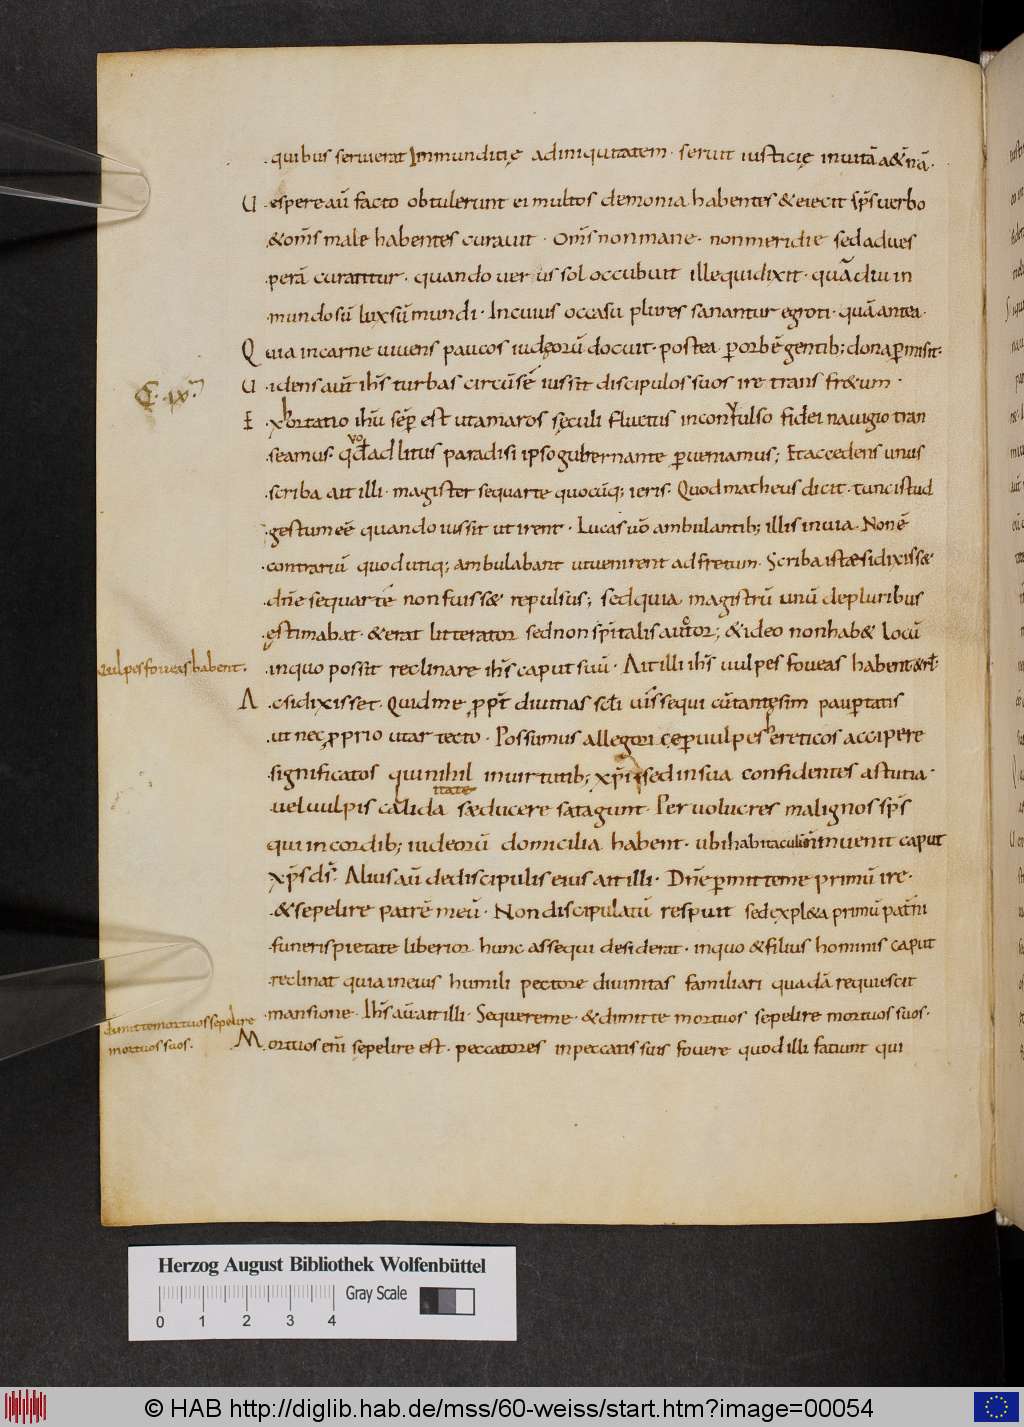 quibus seruierat Inmunditię adiniquitatem · seruit iusticię inuitā a&nā ·
U espere aū facto obtulerunt ei multos demonia habentes & eiecit sps̄ uerbo
& om̄s male habentes curauit · Om̄s non mane · non meridie sed adues
perā curantur · quando uerus sol occubuit ille qui dixit · quādiu in
mundo sū lux sū mundi · Incuius occasu plures sanantur egroti · quā antea ·
Q uia incarne uiuens paucos iudęorū docuit · postea p orbē gentib; dona pmisit ·
C · ix ·
U idens aūt ih̄s turbas circū sē iussit discipulos suos ire trans fr&um ·
E xhortatio ih̄u sēp est ut amaros sęculi fluctus inconuulso fidei nauigio tran
seamus · quod ad litus paradisi ipso gubernante pueniamus ; Et accedens unus
scriba ait illi · magister sequar te quocūq; ieris · Quod matheus dicit · tunc istud
gestum eē quando iussit ut irent · Lucas uō ambulantib; illis inuia · Non ē
contrariū quod utiq; ambulabant ut uenirent ad fretum · Scriba iste si dixiss&
dn̄e sequar te non fuiss& repulsus ; sed quia magistrū unū de pluribus
ęstimabat · & erat litterator sed non sp̄italis auditor ; & ideo non hab& locū
Uulpes foueas habent ·
inquo possit reclinare ih̄s caput suū · Ait illi ih̄s uulpes foueas habent & rl̄ ·
A c si dixisset · Quid me ppt̄ diuitias scl̄i uis sequi cū tantę sim paupertatis
ut nec pprio utar tecto · Possumus allegoricę p uulpes hereticos accipere
significatos qui nihil inuirtutib; xp̄i sed in sua confidentes astutia ·
uel uulpis caliditate sæducere satagunt · Per uolucres malignos sps̄
qui in cordib; iudęorū domicilia habent · ubi habitaculū n̄ inuenit caput
xp̄s ds̄ · Alius aū de discipulis eius ait illi · Dn̄e pmitte me primū ire ·
& sepelire patrē meū · Non discipulatū respuit sed expl&a primū pat̄ni
funeris pietate liberior hunc assequi desiderat · inquo & filius hominis caput
reclinat quia in eius humili pectore diuinitas familiari quadā requiescit
mansione · Ih̄s aū ait illi · Sequere me · & dimitte mortuos sepelire mortuos suos ·
dimitte mortuos sepelire
mortuos suos ·
M ortuos em̄ sepelire est · peccatores inpeccatis suis fouere quod illi faciunt qui
Herzog August Bibliothek Wolfenbüttel
Gray Scale
0 1 2 3 4
© HAB http://diglib.hab.de/mss/60-weiss/start.htm?image=00054